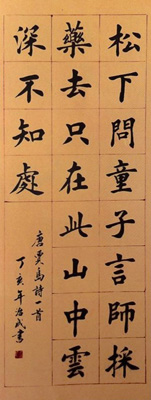 松下問童子言師採
藥去只在此山中雲
深不知處
唐賈島詩一首
丁亥年治武書